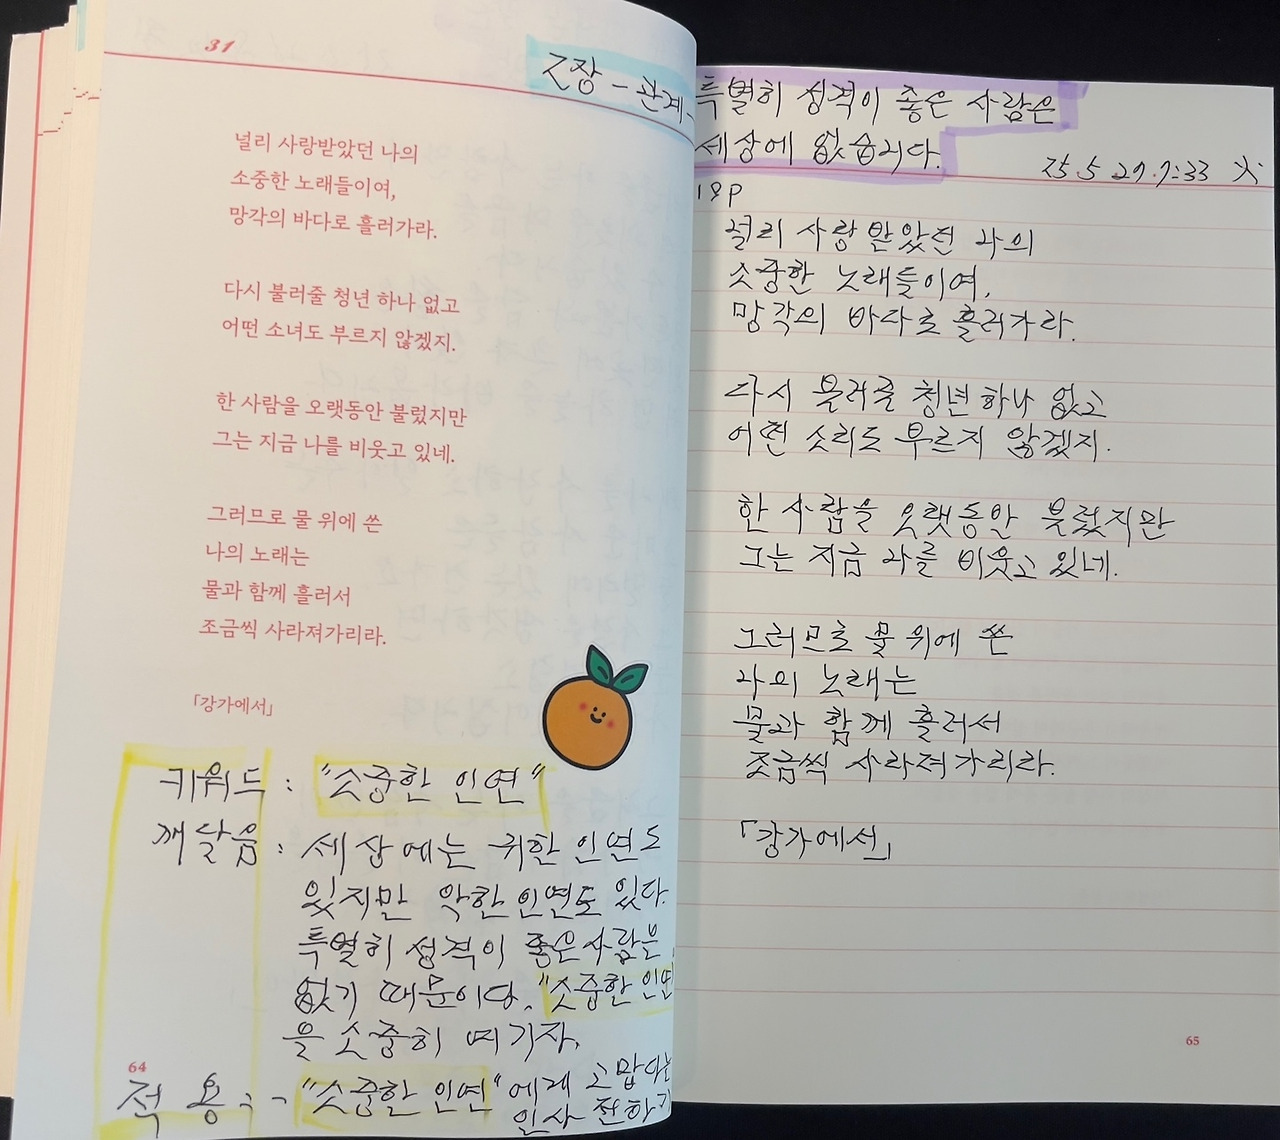 31
2장 - 관계 -
널리 사랑받았던 나의
소중한 노래들이여,
망각의 바다로 흘러가라.
다시 불러줄 청년 하나 없고
어떤 소녀도 부르지 않겠지.
한 사람을 오랫동안 불렀지만
그는 지금 나를 비웃고 있네.
그러므로 물 위에 쓴
나의 노래는
물과 함께 흘러서
조금씩 사라져가리라.
「강가에서」
키워드 : "소중한 인연"
깨달음 : 세상에는 귀한 인연도
있지만 악한 인연도 있다.
특별히 성격이 좋은 사람은
없기 때문이다. "소중한 인연
을 소중히 여기자.
64
적용 : - "소중한 인연"에게 고맙다는
인사 전하기
특별히 성격이 좋은 사람은
세상에 없습니다.
25.5.27.7:33 火
18P
널리 사랑받았던 나의
소중한 노래들이여,
망각의 바다로 흘러가라.
다시 불러줄 청년 하나 없고
어떤 소리도 부르지 않겠지.
한 사람을 오랫동안 불렀지만
그는 지금 나를 비웃고 있네.
그러므로 물 위에 쓴
나의 노래는
물과 함께 흘러서
조금씩 사라져가리라.
「강가에서」
65